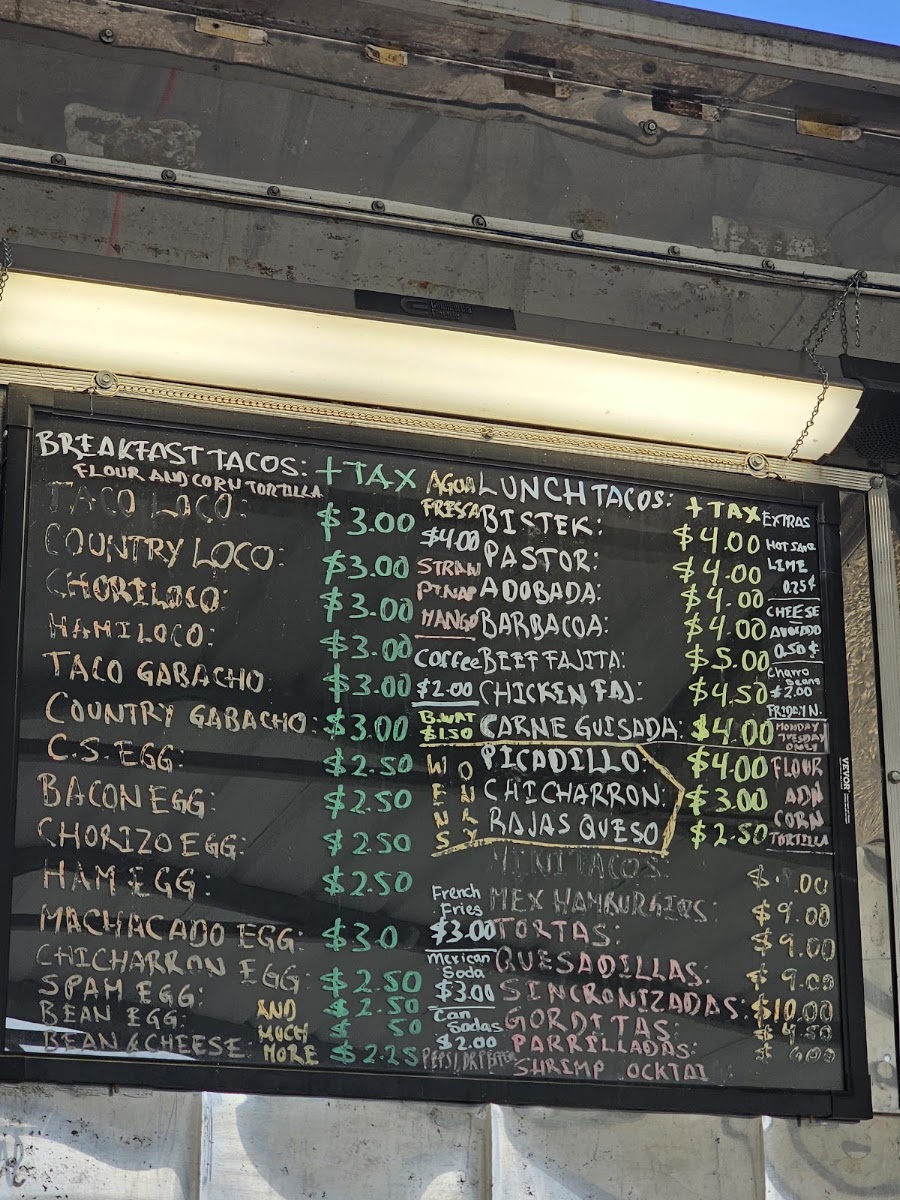 BREAKFAST TACOS: + TAX
FLOUR AND CORN TORTILLA
TACO LOCO: $3.00
COUNTRY LOCO: $3.00
CHORILOCO: $3.00
HAMILOCO: $3.00
TACO GABACHO: $3.00
COUNTRY GABACHO: $3.00
C.S. EGG: $2.50
BACON EGG: $2.50
CHORIZO EGG: $2.50
HAM EGG: $2.50
MACHACADO EGG: $3.0
CHICHARRON EGG: $2.50
SPAM EGG: $2.50
BEAN EGG: $ 50
BEAN & CHEESE: $2.25
AND
MUCH
MORE
AGUA
FRESCA
$4.00
STRAW
PINAP
MANGO
Coffee
$2.00
B.WAT
$1.50
WENS
ONRY
French
Fries
$3.00
Mexican
Soda
$3.00
Can
Sodas
$2.00
PEPSI/DR PEPPER
LUNCH TACOS: + TAX
BISTEK: $4.00
PASTOR: $4.00
ADOBADA: $4.00
BARBACOA: $4.00
BEEF FAJITA: $5.00
CHICKEN FAJ: $4.50
CARNE GUISADA: $4.00
PICADILLO: $4.00
CHICHARRON: $3.00
RAJAS QUESO $2.50
MINI TACOS: .00
MEX HAMBURGIRS: $9.00
TORTAS: $9.00
QUESADILLAS: $9.00
SINCRONIZADAS: $10.00
GORDITAS:
PARRILLADAS:
SHRIMP OCKTAI :
EXTRAS
HOT SAUCE
LIME
0.25¢
CHEESE
AVOCADO
0.50¢
Charro
beans
$2.00
FRIDAY N.
MONDAY
TUESDAY
ONLY
FLOUR
ADN
CORN
TORTILLA
VEVOR